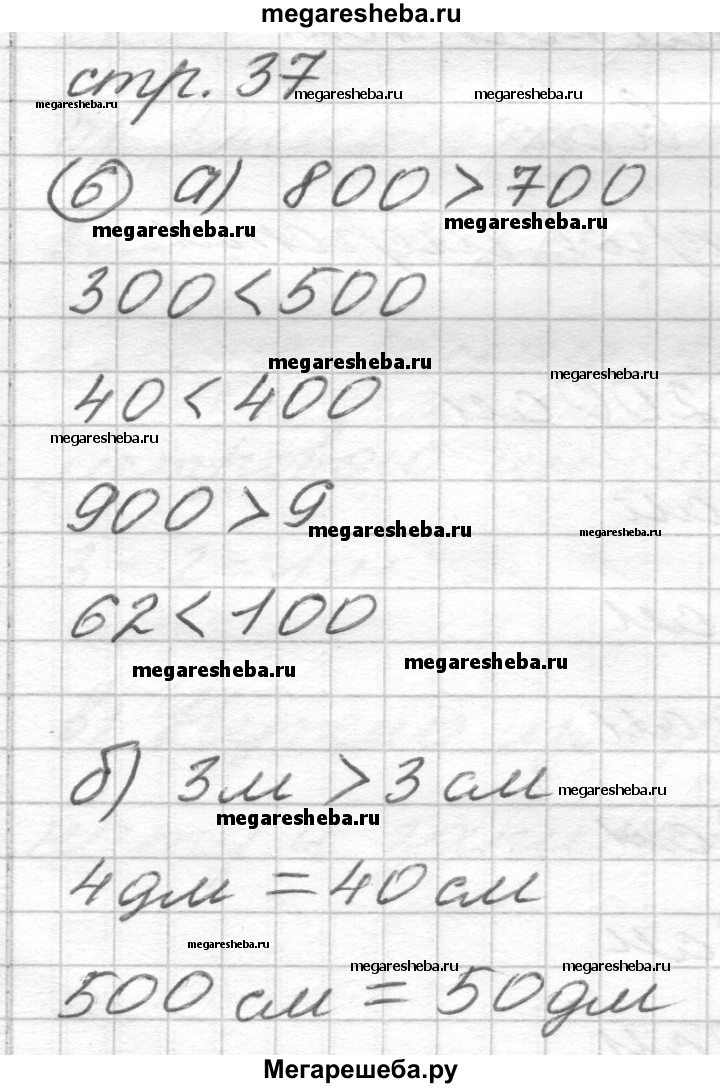 megaresheba.ru
стр. 37
megaresheba.ru megaresheba.ru megaresheba.ru
6 а) 800 > 700
megaresheba.ru megaresheba.ru
300 < 500
megaresheba.ru megaresheba.ru
40 < 400
megaresheba.ru
900 > 9
megaresheba.ru megaresheba.ru
62 < 100
megaresheba.ru megaresheba.ru
б) 3 м > 3 см
megaresheba.ru
megaresheba.ru
4 дм = 40 см
megaresheba.ru
megaresheba.ru megaresheba.ru
500 см = 50 дм
Мегарешеба.ру